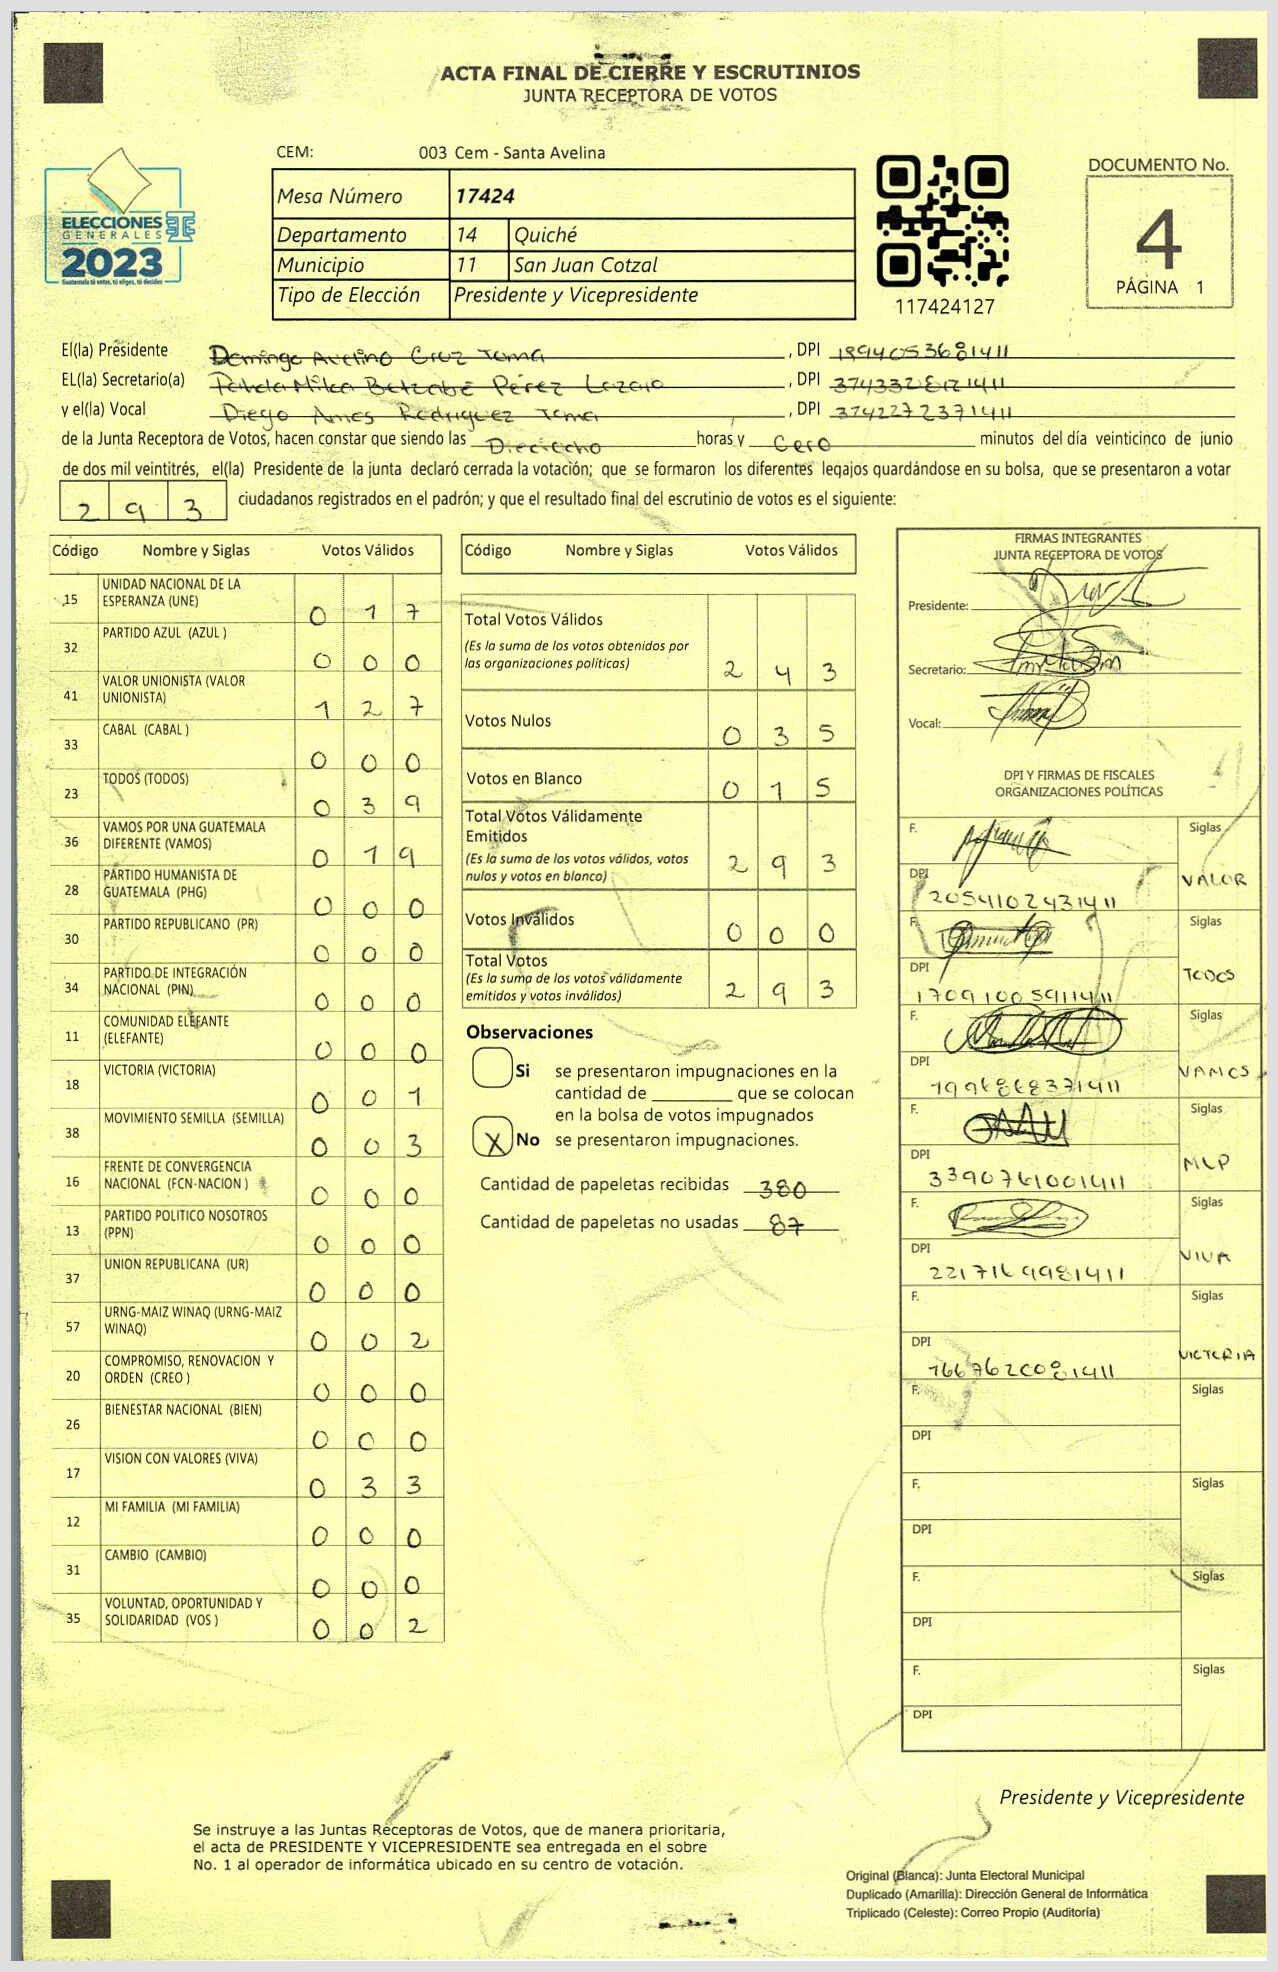 ACTA FINAL DE CIERRE Y ESCRUTINIOS
JUNTA RECEPTORA DE VOTOS
CEM: 003 Cem - Santa Avelina
Mesa Número 17424
Departamento 14 Quiché
Municipio 11 San Juan Cotzal
Tipo de Elección Presidente y Vicepresidente
ELECCIONES
GENERALES
2023
Guatemala tú votas, tú eliges, tú decides
117424127
DOCUMENTO No.
4
PÁGINA 1
El(la) Presidente Domingo Avelino Cruz Toma , DPI 1994053681411
EL(la) Secretario(a) Pérez , DPI
y el(la) Vocal Diego Rodriguez Toma , DPI 3742272371411
de la Junta Receptora de Votos, hacen constar que siendo las Dieciocho horas y Cero minutos del día veinticinco de junio
de dos mil veintitrés, el(la) Presidente de la junta declaró cerrada la votación; que se formaron los diferentes legajos guardándose en su bolsa, que se presentaron a votar
293 ciudadanos registrados en el padrón; y que el resultado final del escrutinio de votos es el siguiente:
Código Nombre y Siglas Votos Válidos
15 UNIDAD NACIONAL DE LA ESPERANZA (UNE) 0 1 7
32 PARTIDO AZUL (AZUL ) 0 0 0
41 VALOR UNIONISTA (VALOR UNIONISTA) 1 2 7
33 CABAL (CABAL ) 0 0 0
23 TODOS (TODOS) 0 3 9
36 VAMOS POR UNA GUATEMALA DIFERENTE (VAMOS) 0 1 9
28 PARTIDO HUMANISTA DE GUATEMALA (PHG) 0 0 0
30 PARTIDO REPUBLICANO (PR) 0 0 0
34 PARTIDO DE INTEGRACIÓN NACIONAL (PIN) 0 0 0
11 COMUNIDAD ELEFANTE (ELEFANTE) 0 0 0
18 VICTORIA (VICTORIA) 0 0 1
38 MOVIMIENTO SEMILLA (SEMILLA) 0 0 3
16 FRENTE DE CONVERGENCIA NACIONAL (FCN-NACION ) 0 0 0
13 PARTIDO POLITICO NOSOTROS (PPN) 0 0 0
37 UNION REPUBLICANA (UR) 0 0 0
57 URNG-MAIZ WINAQ (URNG-MAIZ WINAQ) 0 0 2
20 COMPROMISO, RENOVACION Y ORDEN (CREO ) 0 0 0
26 BIENESTAR NACIONAL (BIEN) 0 0 0
17 VISION CON VALORES (VIVA) 0 3 3
12 MI FAMILIA (MI FAMILIA) 0 0 0
31 CAMBIO (CAMBIO) 0 0 0
35 VOLUNTAD, OPORTUNIDAD Y SOLIDARIDAD (VOS ) 0 0 2
Código Nombre y Siglas Votos Válidos
Total Votos Válidos
(Es la suma de los votos obtenidos por las organizaciones políticas) 2 4 3
Votos Nulos 0 3 5
Votos en Blanco 0 1 5
Total Votos Válidamente Emitidos
(Es la suma de los votos válidos, votos nulos y votos en blanco) 2 9 3
Votos Inválidos 0 0 0
Total Votos
(Es la suma de los votos válidamente emitidos y votos inválidos) 2 9 3
Observaciones
Si se presentaron impugnaciones en la
cantidad de ________ que se colocan
en la bolsa de votos impugnados
X No se presentaron impugnaciones.
Cantidad de papeletas recibidas 380
Cantidad de papeletas no usadas 87
FIRMAS INTEGRANTES
JUNTA RECEPTORA DE VOTOS
Presidente:
Secretario:
Vocal:
DPI Y FIRMAS DE FISCALES
ORGANIZACIONES POLÍTICAS
F. Siglas
DPI 2054102431411 VALOR
F. Siglas
DPI 1709100591411 TODOS
F. Siglas
DPI 1996868371411 VAMOS
F. Siglas
DPI 3390761001411 MLP
F. Siglas
DPI 2217169981411 VIVA
F. Siglas
DPI 1667620081411 VICTORIA
F. Siglas
DPI
F. Siglas
DPI
F. Siglas
DPI
F. Siglas
DPI
Presidente y Vicepresidente
Se instruye a las Juntas Receptoras de Votos, que de manera prioritaria,
el acta de PRESIDENTE Y VICEPRESIDENTE sea entregada en el sobre
No. 1 al operador de informática ubicado en su centro de votación.
Original (Blanca): Junta Electoral Municipal
Duplicado (Amarilla): Dirección General de Informática
Triplicado (Celeste): Correo Propio (Auditoría)